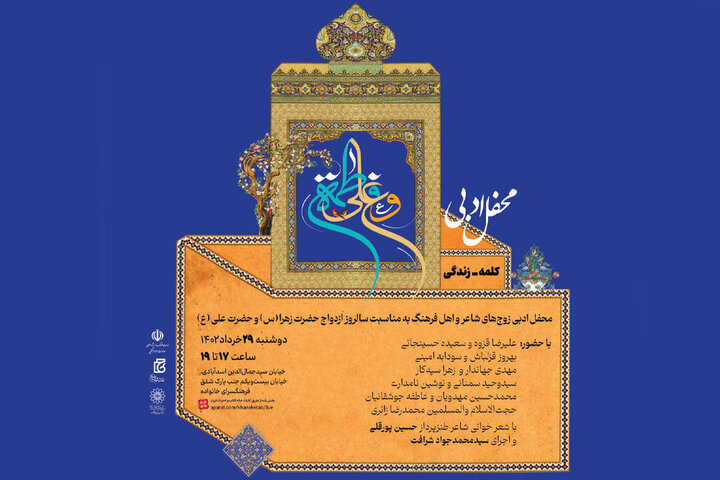 علی و فاطمه
محفل ادبی
کلمه - زندگی
محفل ادبی زوج‌های شاعر و اهل فرهنگ به مناسبت سالروز ازدواج حضرت زهرا (س) و حضرت علی (ع)
با حضور: علیرضا قزوه و سعیده حسینجانی
بهروز قزلباش و سودابه امینی
مهدی جهاندار و زهرا سپه‌کار
سیدوحید سمنانی و نوشین نامدارت
محمدحسین مهدویان و عاطفه جوشقانیان
حجت‌الاسلام والمسلمین محمدرضا زائری
با شعر خوانی شاعر طنزپرداز حسین پورقلی
و اجرای سیدمحمدجواد شرافت
دوشنبه ۲۹ خرداد ۱۴۰۲
ساعت ۱۷ تا ۱۹
خیابان سیدجمال‌الدین اسدآبادی،
خیابان بیست‌ویکم جنب پارک شفق
فرهنگسرای خانواده
aparat.com/khaneketab/live